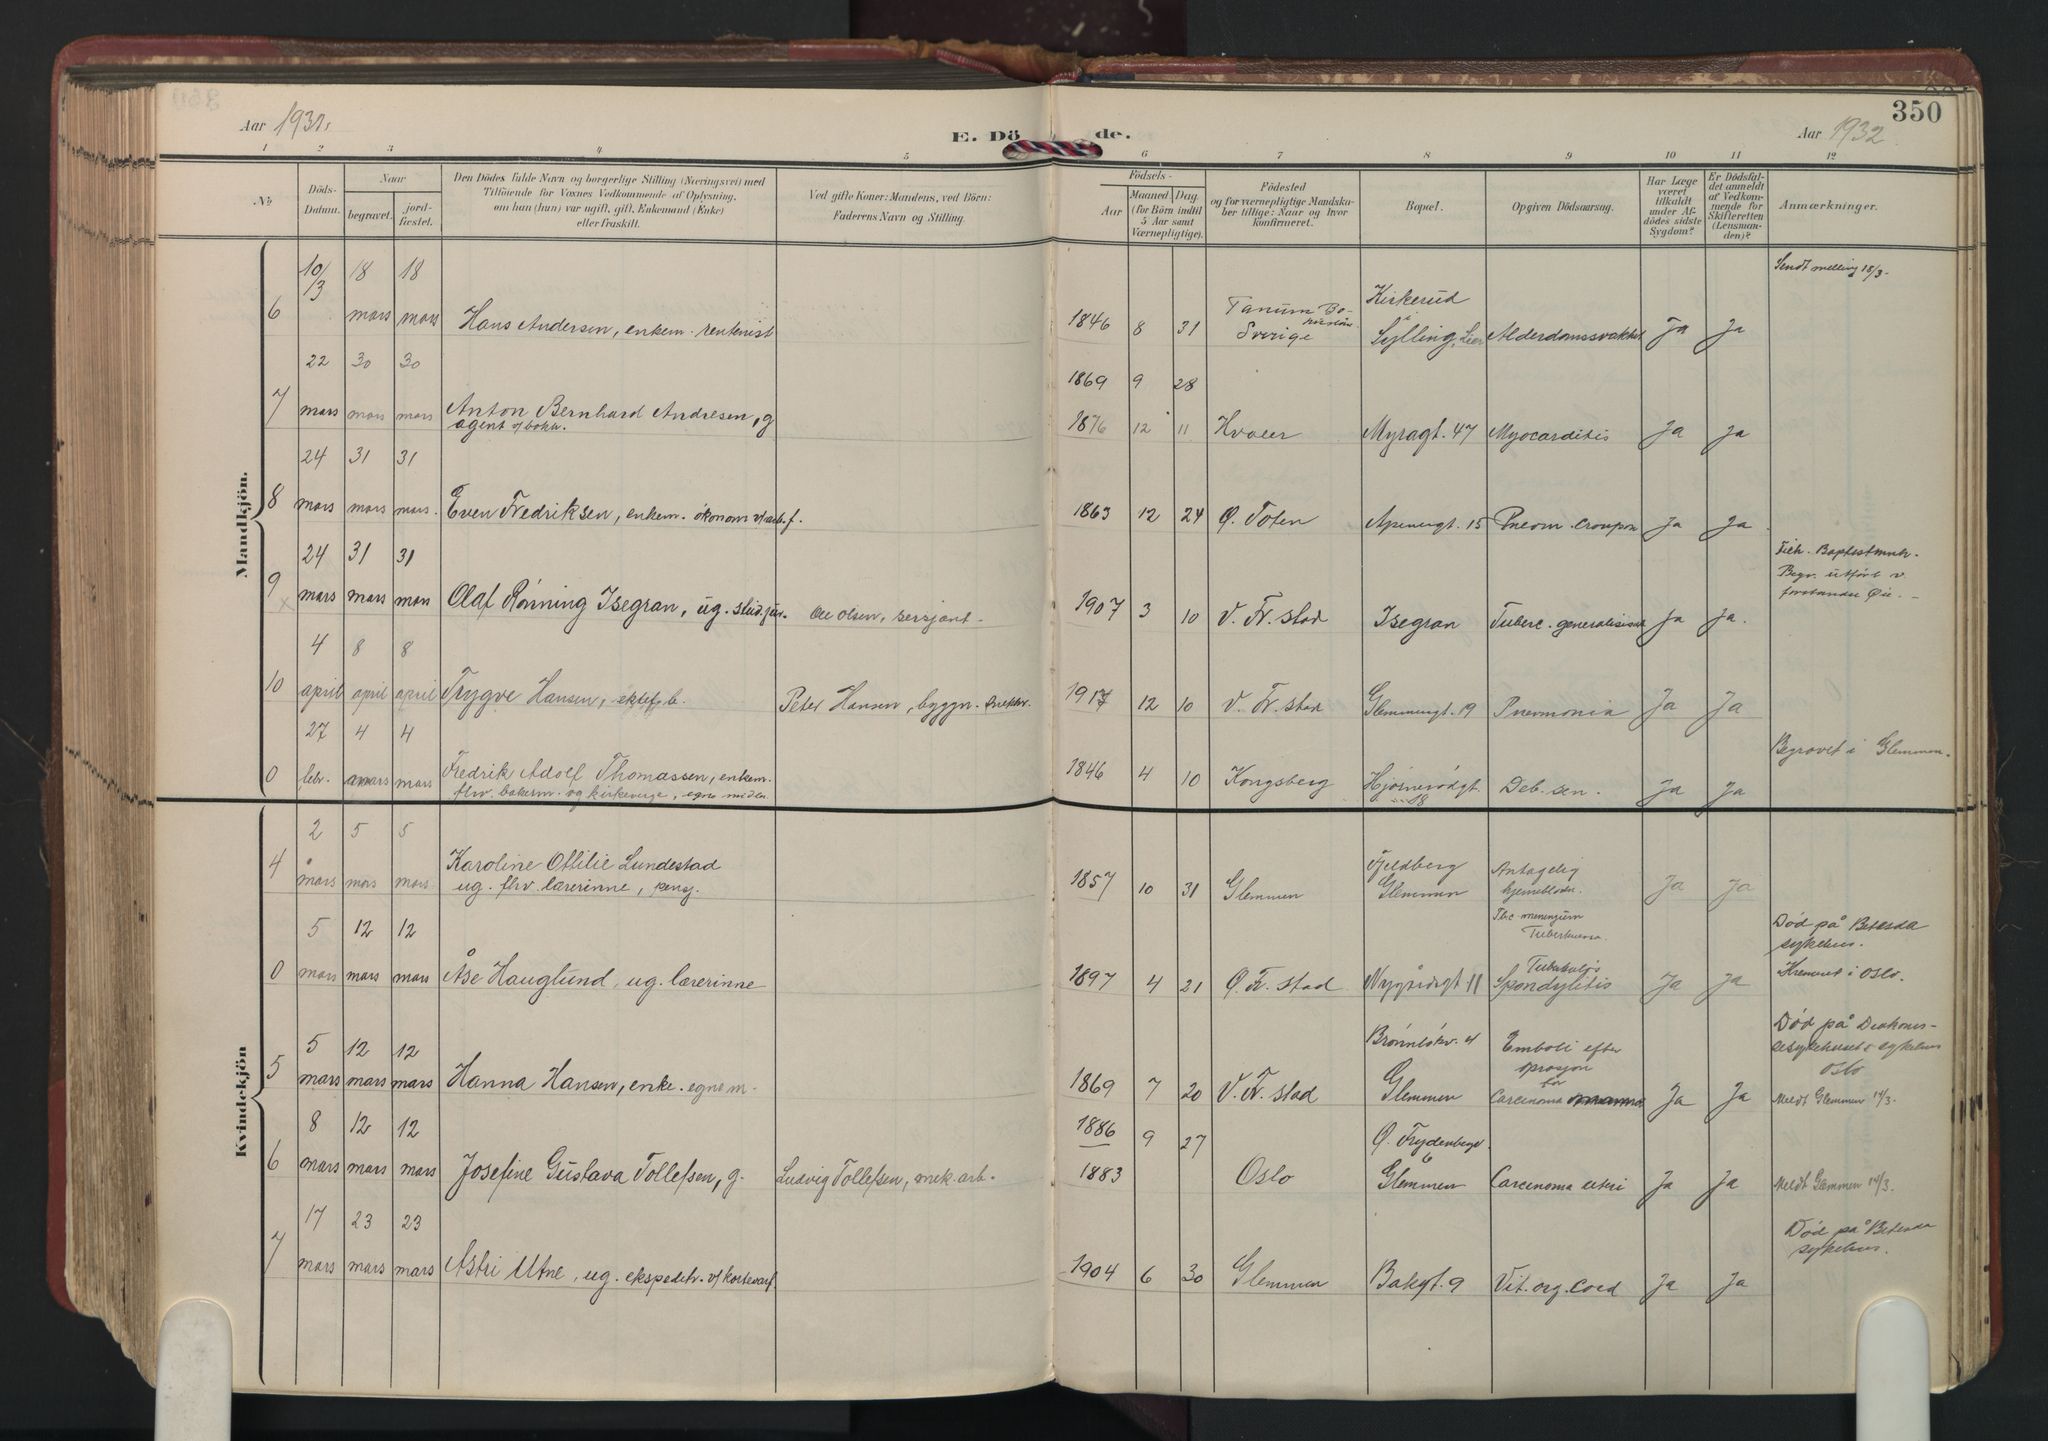 350
Aar 1931.
E. Döde.
Aar 1932
1 2 3 4 5 6 7 8 9 10 11 12
No
Döds-Datum.
Naar
begravet.
jordfæstet.
Den Dödes fulde Navn og borgerlige Stilling (Næringsvei) med
Tilföiende for Voxnes Vedkommende af Oplysning,
om han (hun) var ugift, gift, Enkemand (Enke)
eller fraskilt.
Ved gifte Koner: Mandens, ved Börn:
Faderens Navn og Stilling.
Födsels-
Aar
Maaned. Dag.
(for Börn indtil
5 Aar samt
Værnepligtige).
Födested
og for værnepligtige Mandskaber tillige: Naar og hvor
Konfirmeret.
Bopæl.
Opgiven Dödsaarsag.
Har Læge
været
tilkaldt
under Afdödes sidste
Sygdom?
Er Dödsfaldet anmeldt
af Vedkommende for
Skifteretten
(Lensmanden)?
Anmærkninger.
Mandkjön.
6 10/3 18 mars 18 mars Hans Andersen, enkem. rentenist 1846 8 31 Tanum Sverige Kirkerud Sylling, Lier Alderdomssvakhet Ja Ja Sendt melding 18/3-
7 22 mars 30 mars 30 mars Anton Bernhard Andresen, g
agent
1869 9 28
1876 12 11 Hvaler Myragt. 47 Myocarditis Ja Ja
8 24 mars 31 mars 31 mars. Even Fredriksen, enkem. økonom v/arb.f. 1863 12 24 Ø. Toten Apenesgt. 15 Pneom. croupon Ja Ja
9 x 24 mars 31 mars 31 mars Olaf Rønning Isegran, ug. stud.jur. Ole Olsen, sersjant. 1907 3 10 V. Fr.stad Isegran Tuberc. generalisisat Ja Ja. Baptistmenh.
Begr. utført v.
forstander
10 4 april 8 april 8 april Trygve Hansen, ektef. b. Peter Hansen, byggn. snekker. 1917 12 10 V. Fr.stad Glemmengt. 19 Pnevmonia Ja Ja
0 27 febr. 4 mars 4 mars Fredrik Adolf Thomassen, enkem.
fhv. bakerm. og kirkeverge, egne midler
1846 4 10 Kongsberg Deb. sen. Ja Ja Begravet i Glemmen.
Kvindekjön
4 2 mars 5 mars 5 mars. Karoline Otilie Lundestad
ug. fhv. lærerinne, pensj.
1857 10 31 Glemmen Fjeldberg Glemmen Antagelig hjerneblødn. Ja Ja
0 5 mars 12 mars 12 mars Åse Hauglund, ug. lærerinne 1897 4 21 Ø. Fr.stad Nygårdsgt. 11 Spondylitis Ja Ja Død på Betesda
sykehus.
Kremert i Oslo.
5 5 mars 12 mars 12 mars Hanna Hansen, enke. egne m. 1869 7 20 V. Fr.stad Brønnløkv. 4 Glemmen Emboli efter
oprasjon
for
Carcinoma mamma Ja Ja Død på Diakonis-
sesykehuset
Oslo
Meldt Glemmen 14/3.
6 8 mars 12 mars 12 mars Josefine Gustava Tollefsen, g. Ludvig Tollefsen, mek. arb. 1886 9 27
1883 Oslo Ø. Frydenbergv. 6 Glemmen Carcinoma uteri Ja Ja Meldt Glemmen 14/3.
7 17 mars 23 mars 23 mars Astri Utne, ug. ekspeditr. v/kortevarf. 1904 6 30 Glemmen Bakgt. 9 Vit. org. cord Ja Ja Død på Betesda
sykehus.